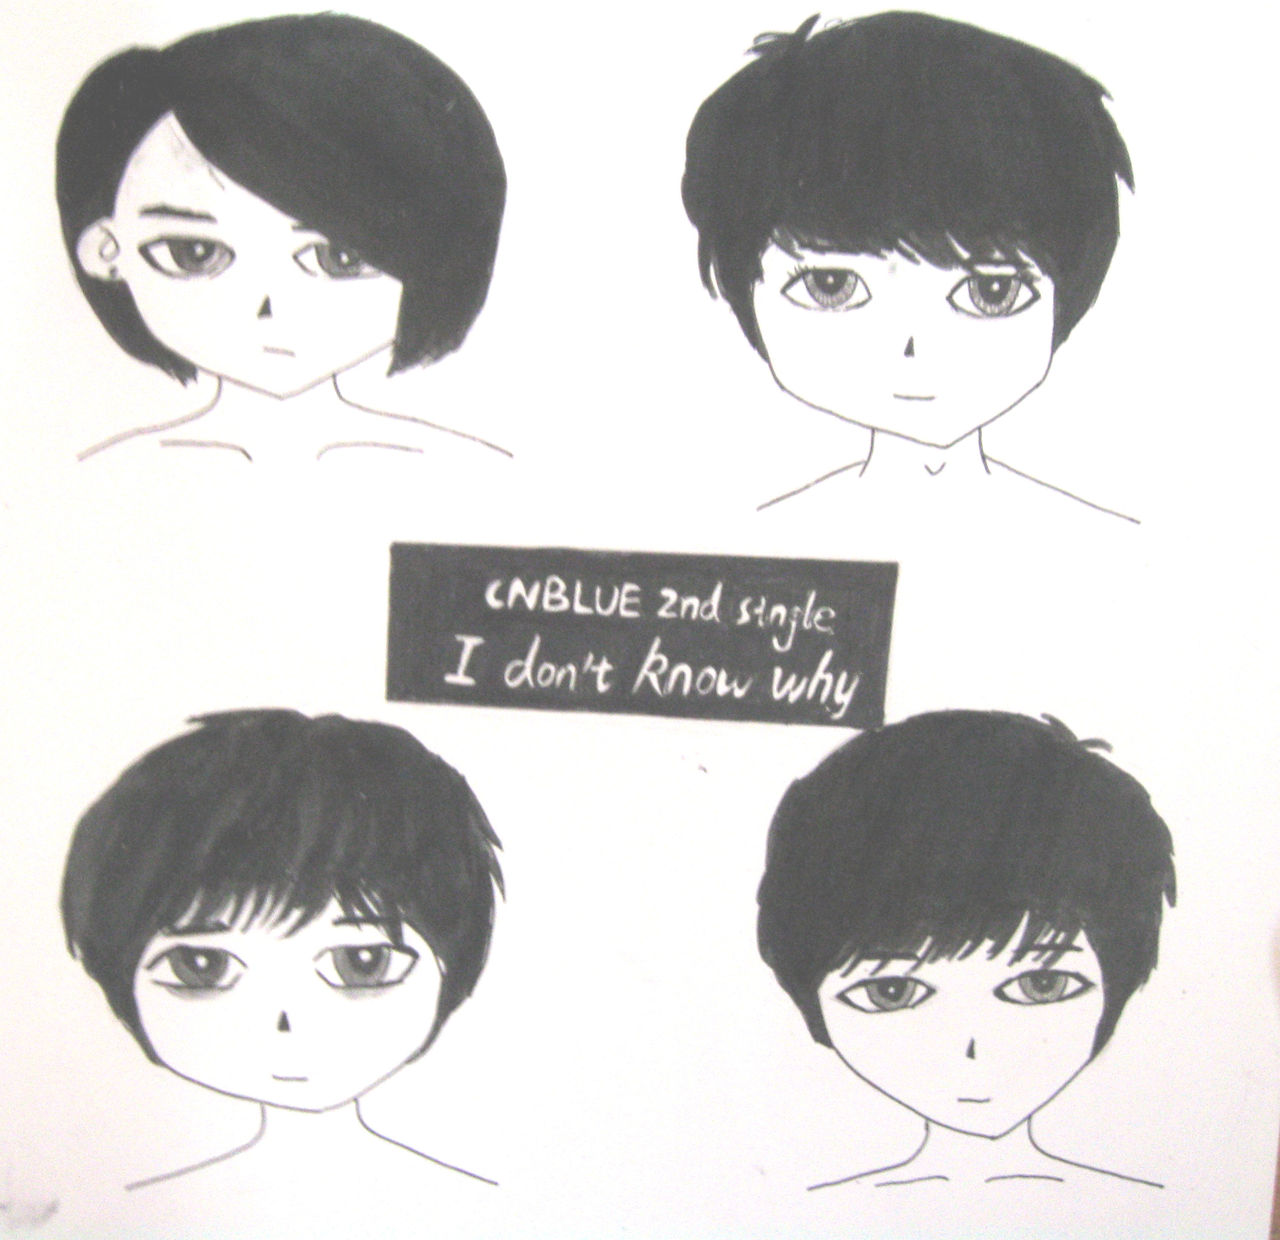 CNBLUE 2nd single
I don't know why